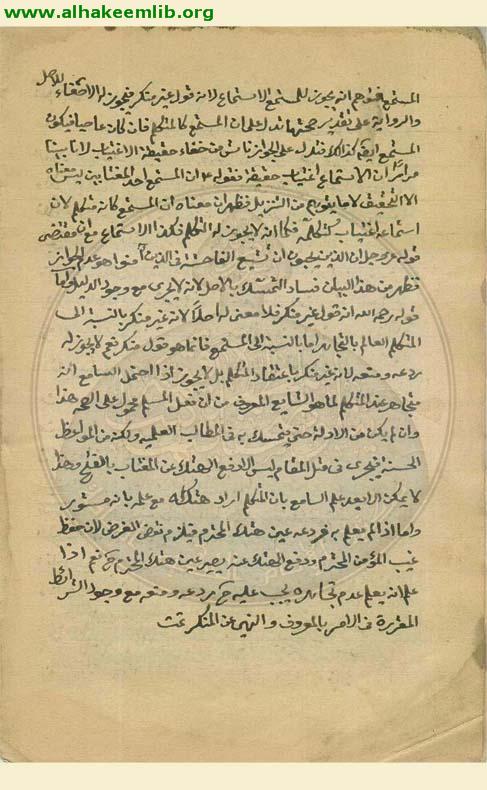 www.alhakeemlib.org
المستمع فتوهم انه يجوز للمستمع الاستماع لانه قول غير منكر فيجوز له الاصغاء للاصل
والرواية على تقدير صحتها تدل على ان المستمع كالمتكلم فان كان عاصيا فيكون
المستمع ايضا كذلك فتدل على الجواز ناش من خفاء حقيقة الاغتياب لانا بينا
مرارا ان الاستماع اغتياب حقيقة فقوله ان المستمع احد المغتابين معناه
الا التحقيق لا ما يتوهم من التنزيل فظهر ان معناه ان المستمع كانه متكلم لان
استماعه اغتياب كتكلمه فكما انه لا يجوز له التكلم فكذا الاستماع مع ان مقتضى
قوله عز وجل ان الذين يحبون ان تشيع الفاحشة في الذين آمنوا هو عدم الجواز
فظهر من هذا البيان فساد التمسك بالاصل لانه لا يجرى مع وجود الدليل واما
قوله رحمه الله انه قول غير منكر فلا معنى له اصلا لانه غير منكر بالنسبة الى
المتكلم العالم بالتجاهر اما بالنسبة الى المستمع فانما هو قول منكر نعم لا يجوز له
ردعه ومنعه لانه غير منكر باعتقاد المتكلم بل لا يجوز اذا احتمل السامع انه
متجاهر عند المتكلم لما هو الشايع المعروف من ان فعل المسلم محمول على الصحة هذا
وان لم يكن من الادلة حتى يتمسك به في المطالب العلمية ولكنه من المواعظ
الحسنة فيجرى في مثل المقام ليس الا دفع الهتك عن المغتاب بالفتح وهذا
لا يمكن الا بعد علم السامع بان المتكلم اراد هتكه مع علمه بانه مستور
واما اذا لم يعلم به فردعه عين هتك المحترم فيلزم نقض الغرض لان حفظ
غيب المؤمن المحترم ودفع الهتك عنه يصير عين هتك المحترم نعم اذا
علم انه يعلم عدم تجاهره يجب عليه ردعه ومنعه مع وجود الشرائط
المقررة في الامر بالمعروف والنهي عن المنكر تمت